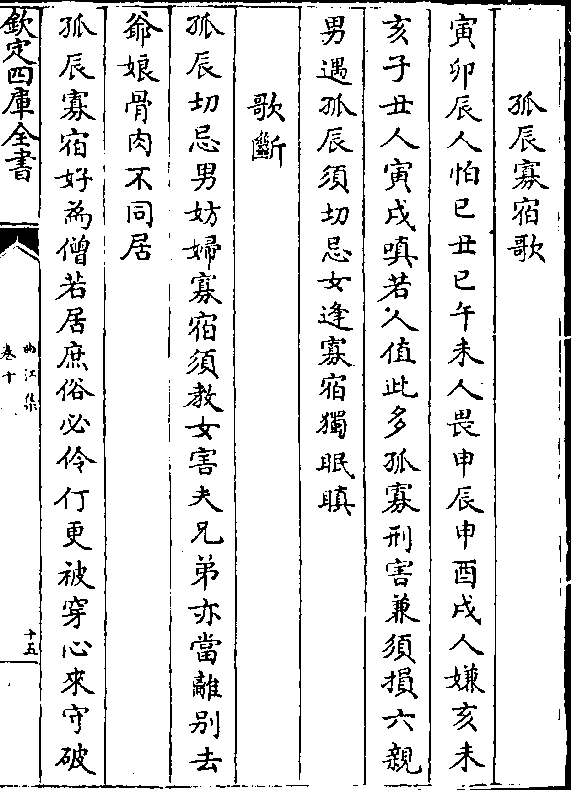 孤辰寡宿歌
寅卯辰人怕巳丑巳午未人畏申辰申酉戌人嫌亥未
亥子丑人寅戌嗔若人值此多孤寡刑害兼須損六親
男遇孤辰須切忌女逢寡宿獨眠瞋
歌斷
孤辰切忌男妨婦寡宿須教女害夫兄弟亦當離别去
爺娘骨肉不同居
孤辰寡宿好為僧若居庶俗必伶仃更被穿心來守破
欽定四庫全書
卷十
十五